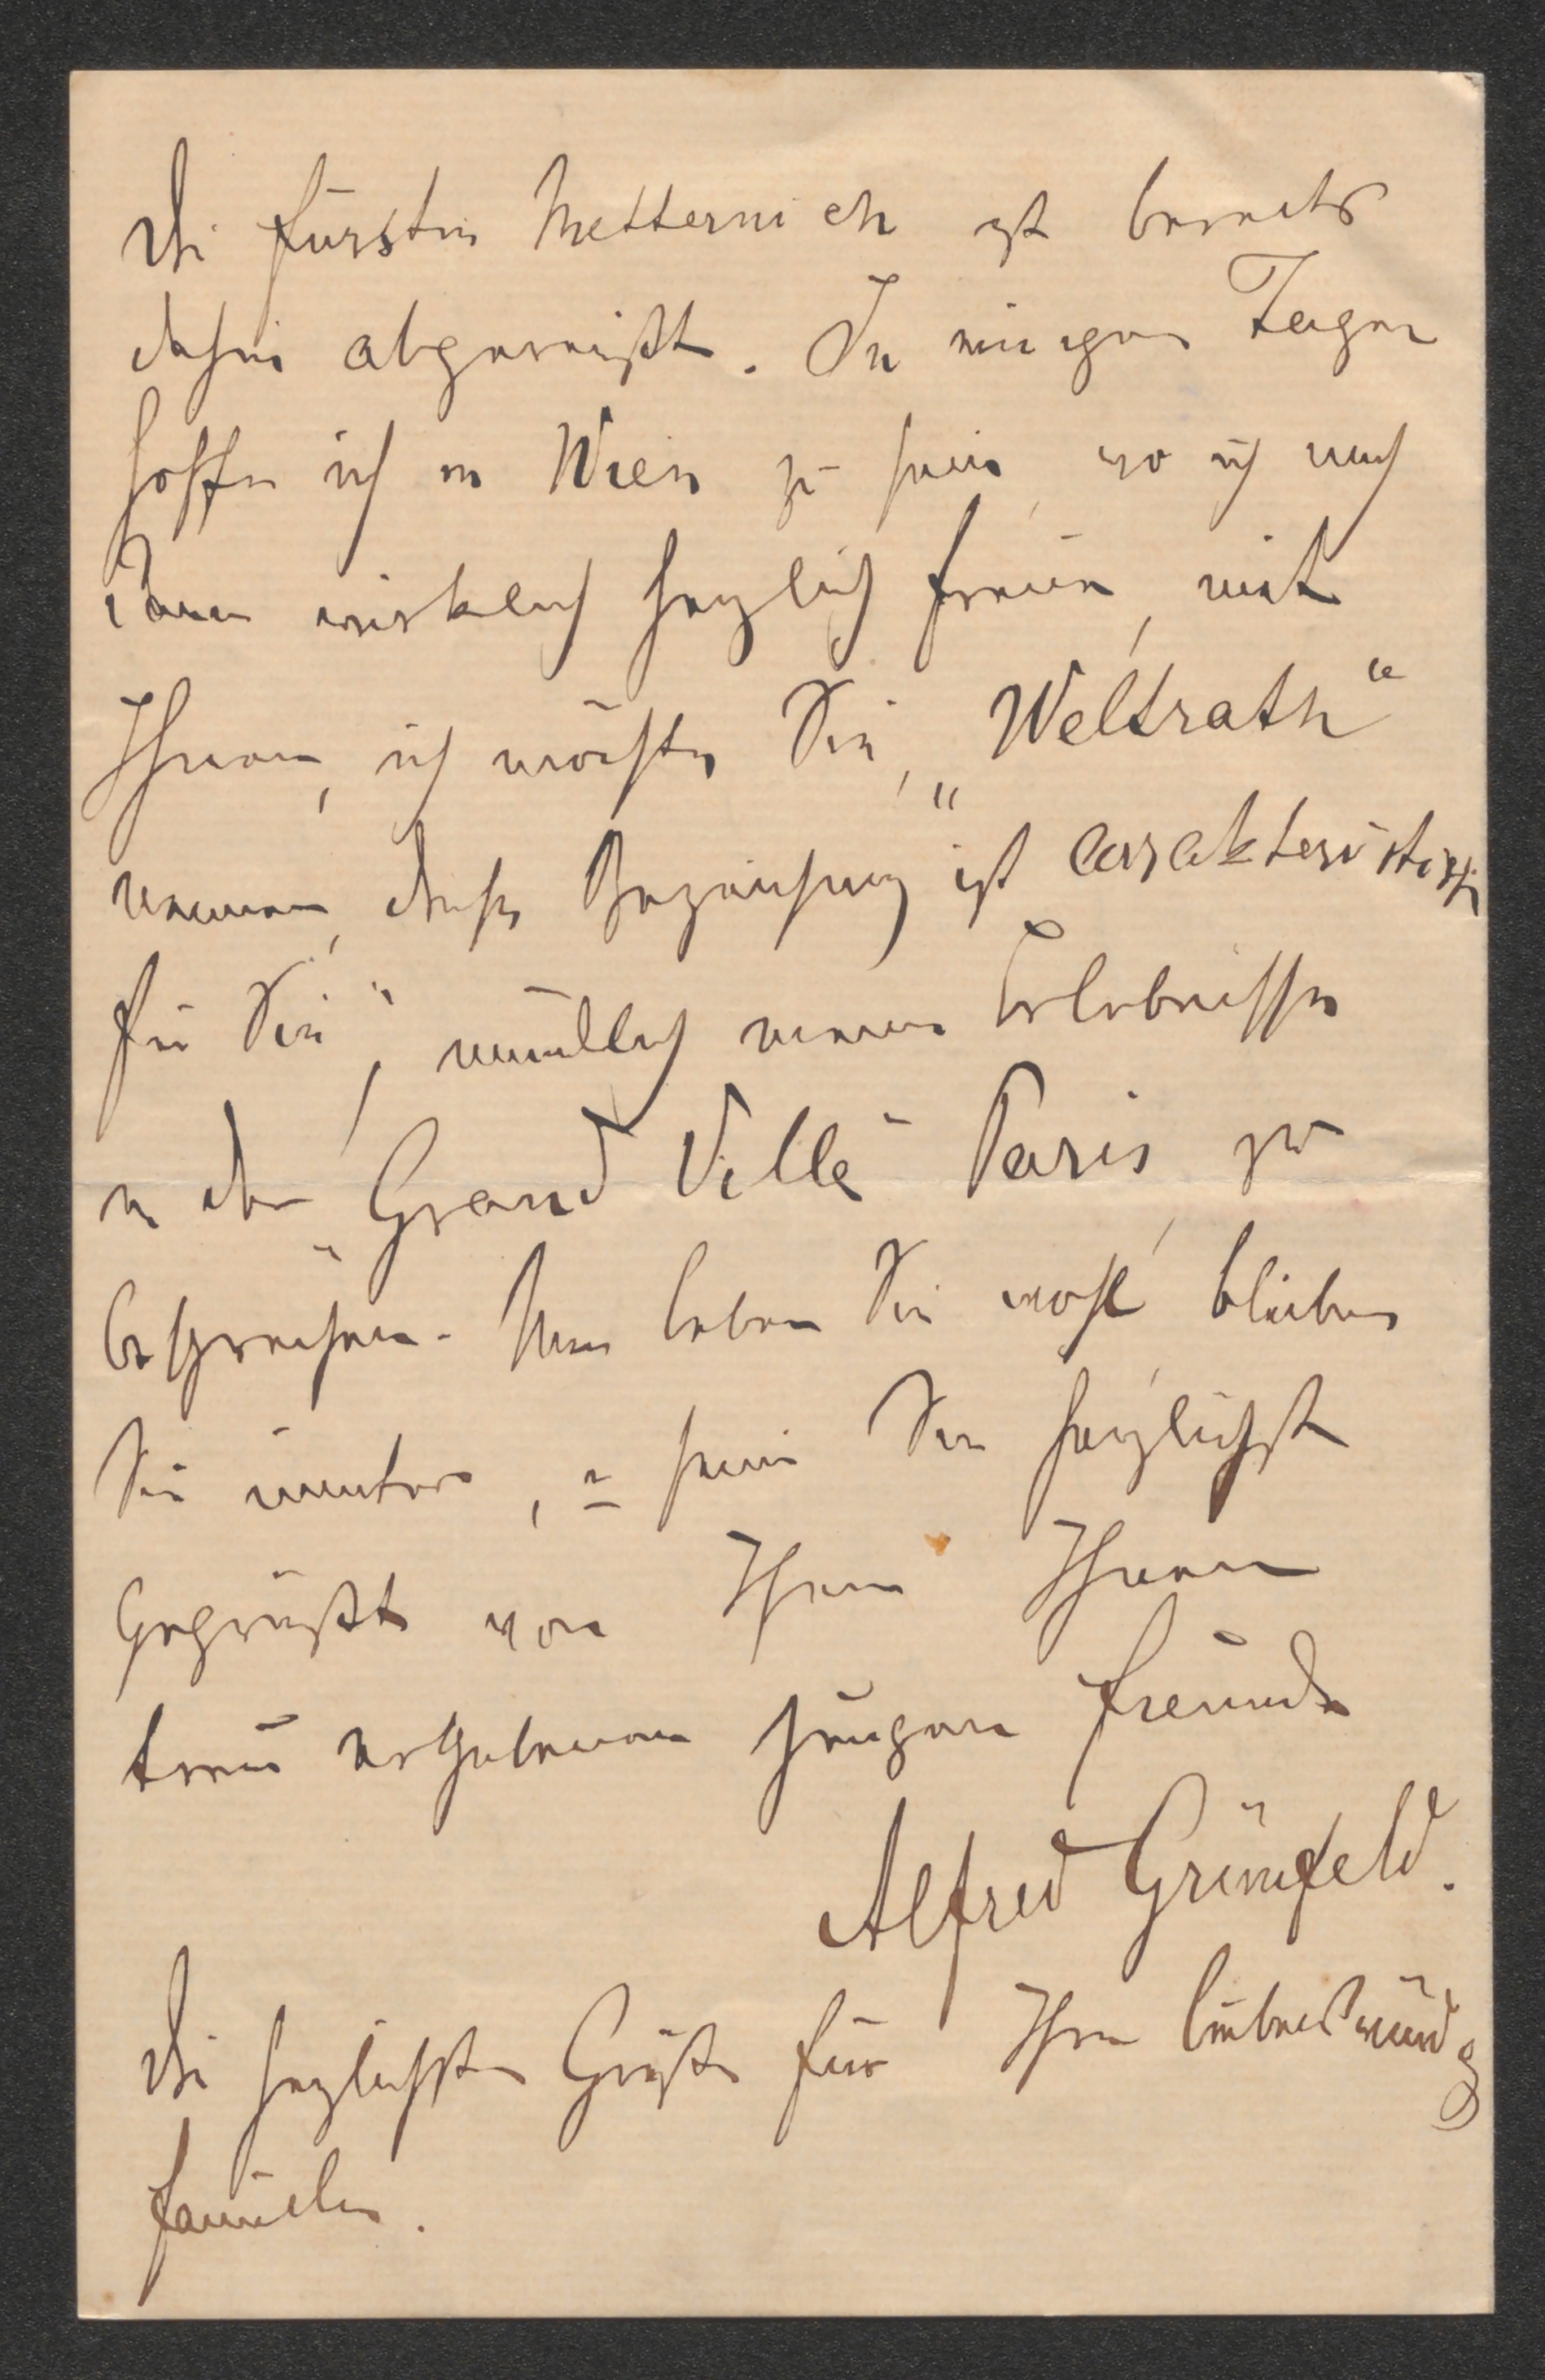 Die Fürstin Metternich ist bereits
dahin abgereißt. In einigen Tagen
hoffe ich in Wien zu sein, wo ich mich
dann wirklich herzlich freue, mit
Ihnen, ich möchte Sie, „Weltrath“
nennen, diese Bezeichnung ist carakteristisch
für Sie“, mündlich meine Erlebnisse
in der „Grand Ville“ Paris, zu
besprechen. Nun leben Sie wohl, bleiben
Sie munter, u seien Sie herzlichst
gegrüßt von Ihrem Ihnen
treu ergebenen jungen Freunde
Alfred Grünfeld.
Die herzlichsten Grüße für Ihre liebenswürdg
Familie.